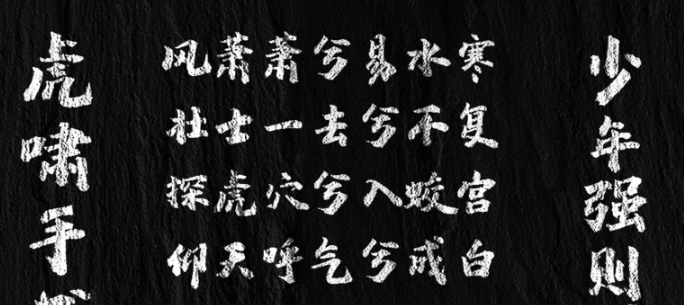 虎啸手
风萧萧兮易水寒
壮士一去兮不复
探虎穴兮入蛟宫
仰天呼气兮成白
少年强则